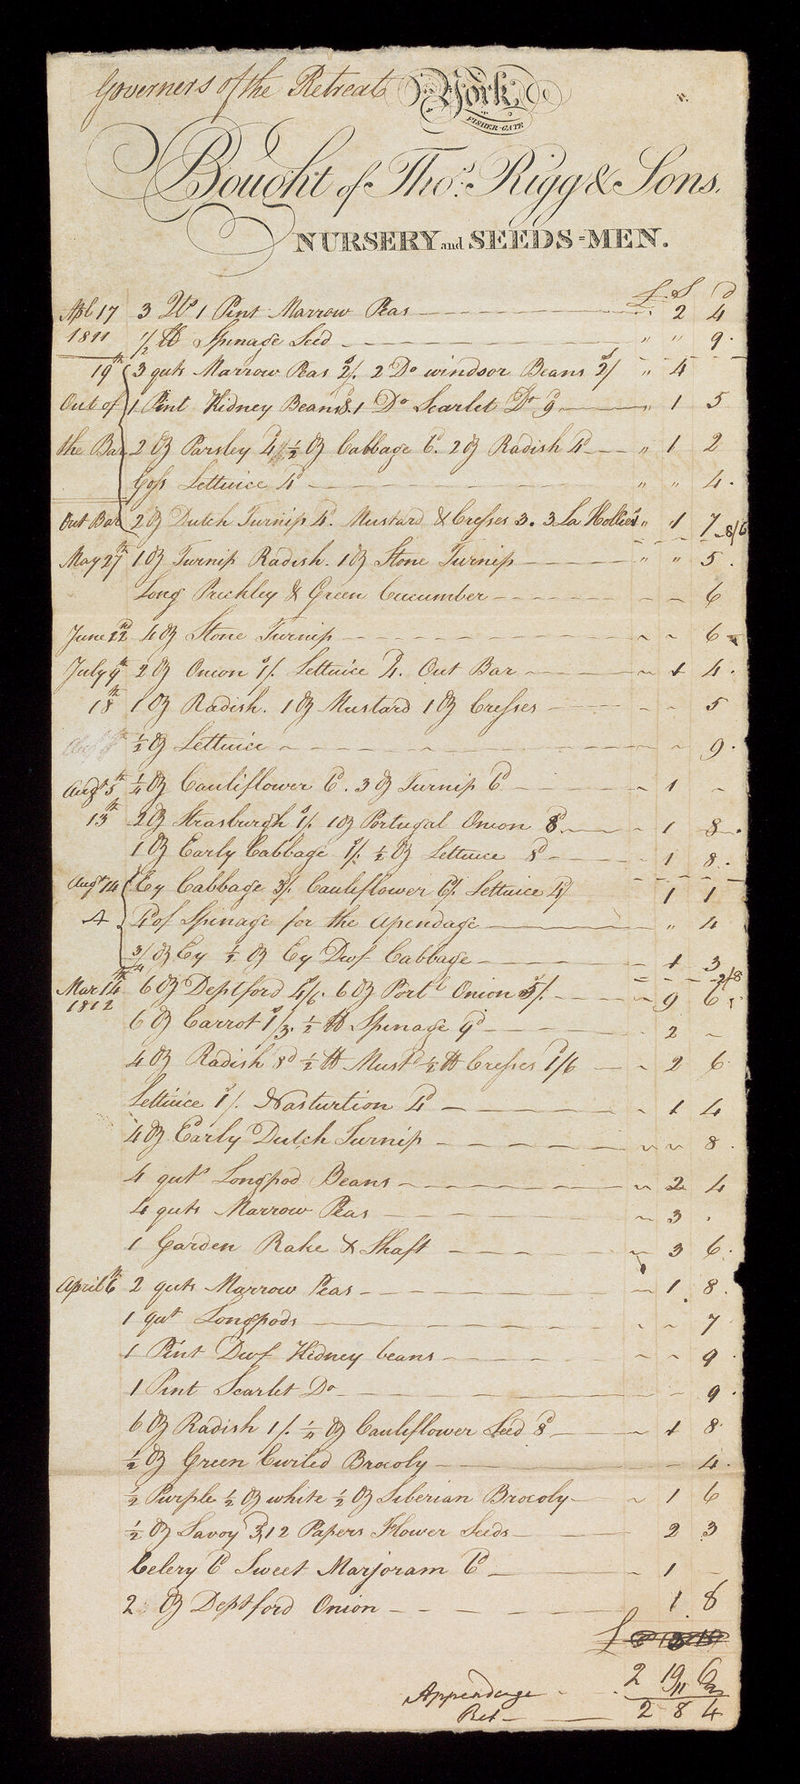 Governers of the Retreat York
FISHER-GATE
Bought of Thos. Rigg & Sons.
NURSERY and SEEDS=MEN.
£ S d
Apl 17 3 Qts 1 Pint Marrow Peas 2 4
1811 1/2 lb Spinage Seed " " 9
19th 3 quts Marrow Peas 2/. 2 Do windsor Beans 2/ " 4
Out of 1 Pint Kidney Beans 8. 1 Do Scarlet Do 9 " 1 5
the Bar 2 oz Parsley 4 1/2 oz Cabbage 6d. 2 oz Radish 4d " 1 2
Goss Lettuice 4d " " 4
Out Bar 2 oz Dutch Turnip 4d. Mustard & Cresses 3. 3 La Hollies " 1 7 8/6
May 27th 1 oz Turnip Radish. 1 oz Stone Turnip " " 5
Long Prickley & Green Cucumber 6
June 22nd 4 oz Stone Turnip 6
July 9th 2 oz Onion 1/. Lettuice 4d. Out Bar 1 4
18th 1 oz Radish. 1 oz Mustard 1 oz Cresses 5
1/2 oz Lettuice 9
Augst 5th 1/4 oz Cauliflower 6d. 3 oz Turnip 6d 1 -
13th 2 oz Strasburgh 1/. 1 oz Portugal Onion 8. 1 8
1 oz Early Cabbage 1/. 1/2 oz Lettuce 8d 1 8
Augt 14 Ey Cabbage 3/. Cauliflower 6/. Lettuice 4/ 1 1
A of Spinage for the Apendage " 4
3/4 oz Ey 1/2 oz Ey Dwf Cabbage 1 3 2/8
Mar 14th 6 oz Deptford 4/6. 6 oz Portl Onion 5/. 9 6
1812 6 oz Carrot 1/3. 1/2 lb Spinage 9d 2 -
4 oz Radish 8d 1/2 lb Mustd 1/2 lb Cresses 1/6 2 6
Lettuice 1/. Nasturtion 4d 1 4
4 oz Early Dutch Turnip 8
4 quts Longpod Beans 2 4
4 quts Marrow Peas 3 .
1 Garden Rake & Shaft 3 6
April 6th 2 quts Marrow Peas 1 8
1 qut Longpods 7
1 Pint Dwf Kidney beans 9
1 Pint Scarlet Do 9
6 oz Radish 1/. 1/4 oz Cauliflower Seed 8d 1 8
1/2 oz Green Curled Brocoly 4
1/2 Purple 1/2 oz white 1/2 oz Siberian Brocoly 1 6
1/2 oz Savoy 3, 12 Papers Flower Seeds 2 3
Celery 6d Sweet Marjoram 6d 1 -
2 oz Deptford Onion 1 8
£
2 19 6
Appendage 11 2
Ret 2 8 4